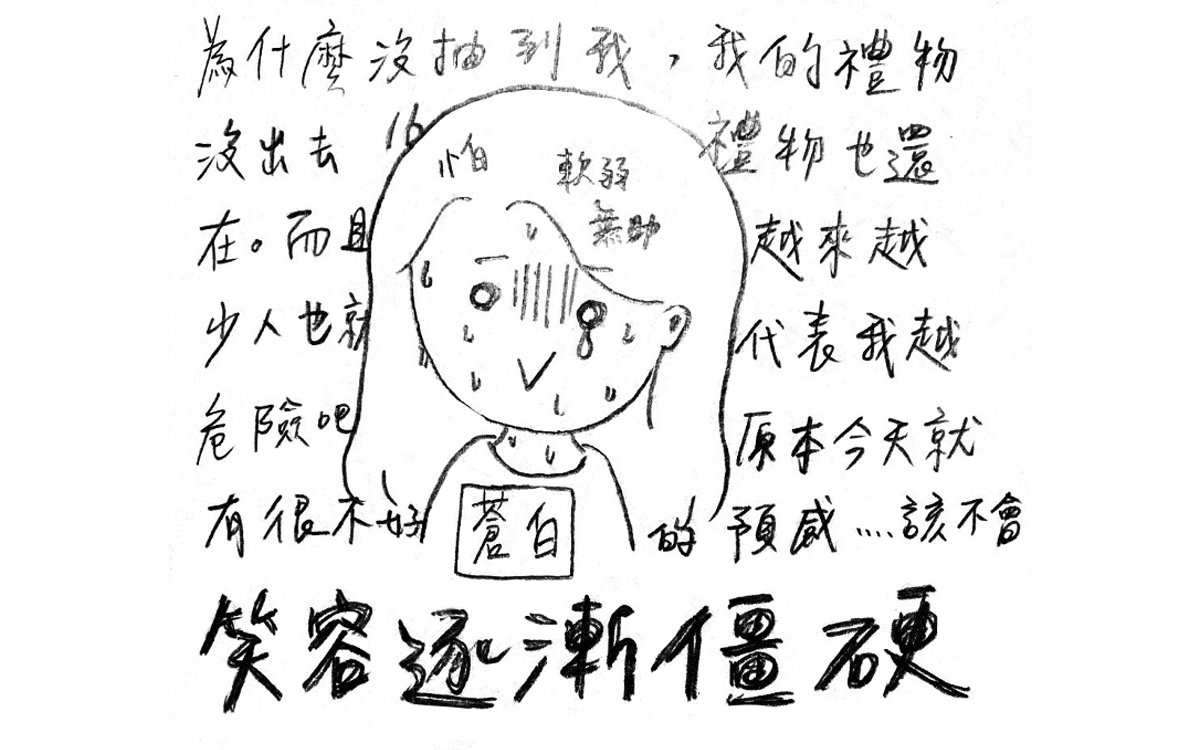 為什麼沒抽到我，我的禮物
沒出去 禮物也還
怕 軟弱
無助
在。而且 越來越
少人也就 代表我越
危險吧 原本今天就
有很不好 的預感....該不會
蒼白
笑容逐漸僵硬